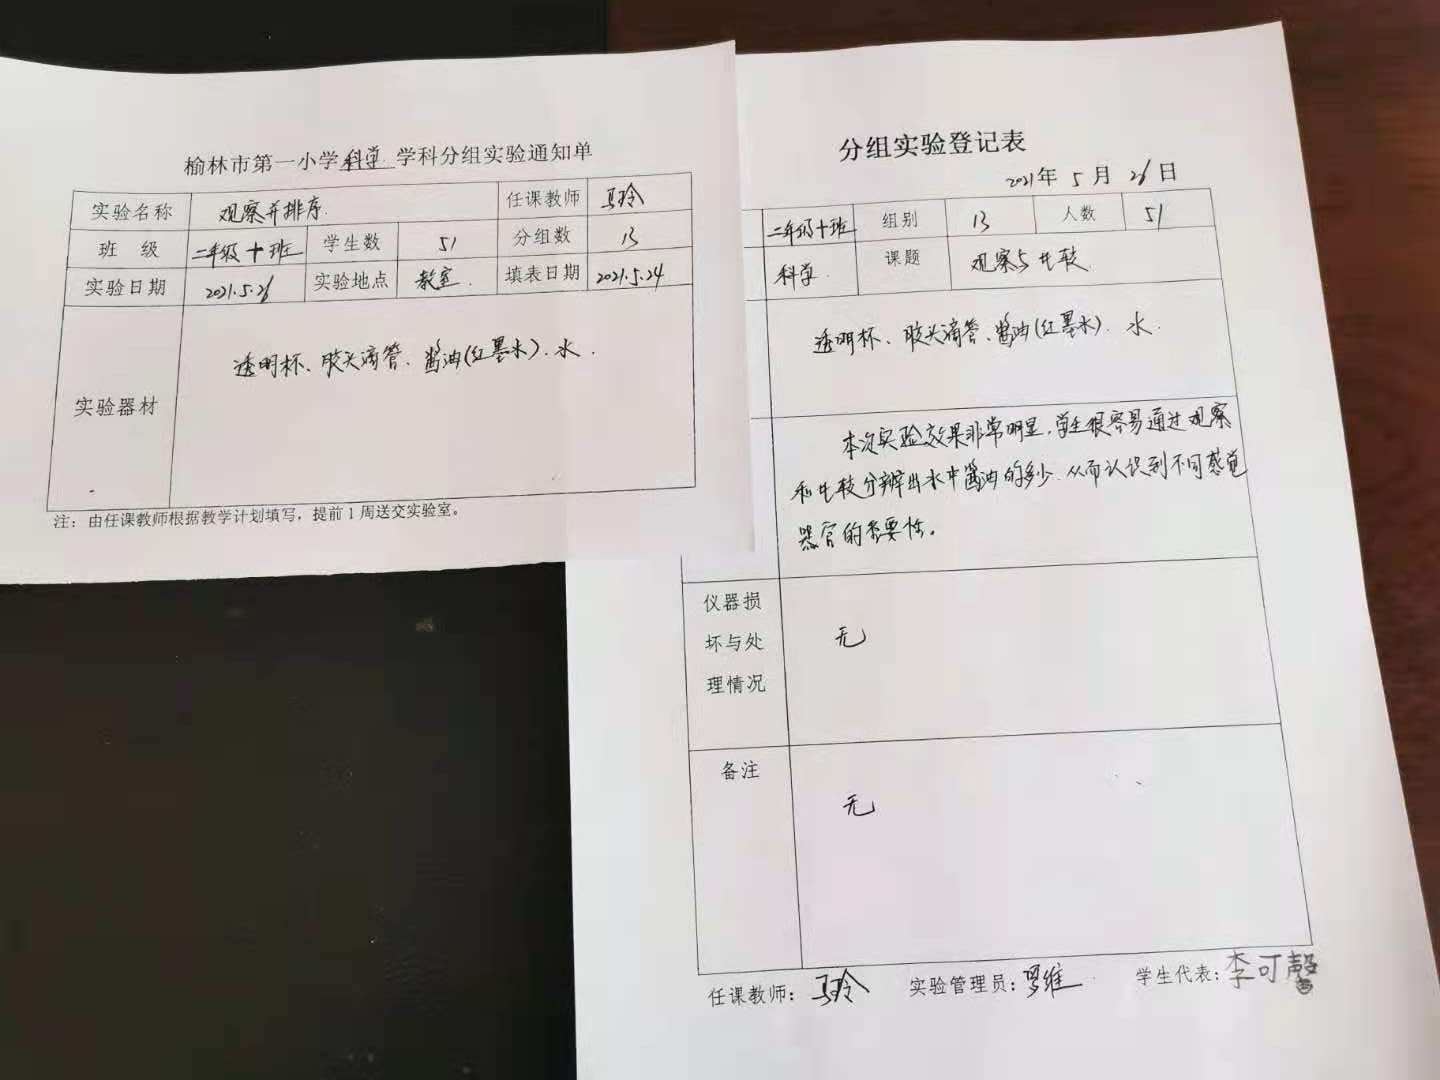 榆林市第一小学科学学科分组实验通知单
实验名称 观察并排序. 任课教师 马玲
班 级 二年级十班 学生数 51 分组数 13
实验日期 2021.5.26 实验地点 教室. 填表日期 2021.5.24
实验器材 透明杯、胶头滴管、酱油(红墨水).水.
注:由任课教师根据教学计划填写,提前1周送交实验室。
分组实验登记表
2021年 5 月 26 日
二年级十班 组别 13 人数 51
科学. 课题 观察与比较
透明杯、胶头滴管、酱油(红墨水).水.
本次实验效果非常明显,学生很容易通过观察
和比较分辨出水中酱油的多少.从而认识到不同感觉
器官的重要性。
仪器损
坏与处 无
理情况
备注
无
任课教师: 马玲 实验管理员: 罗维 学生代表: 李可馨